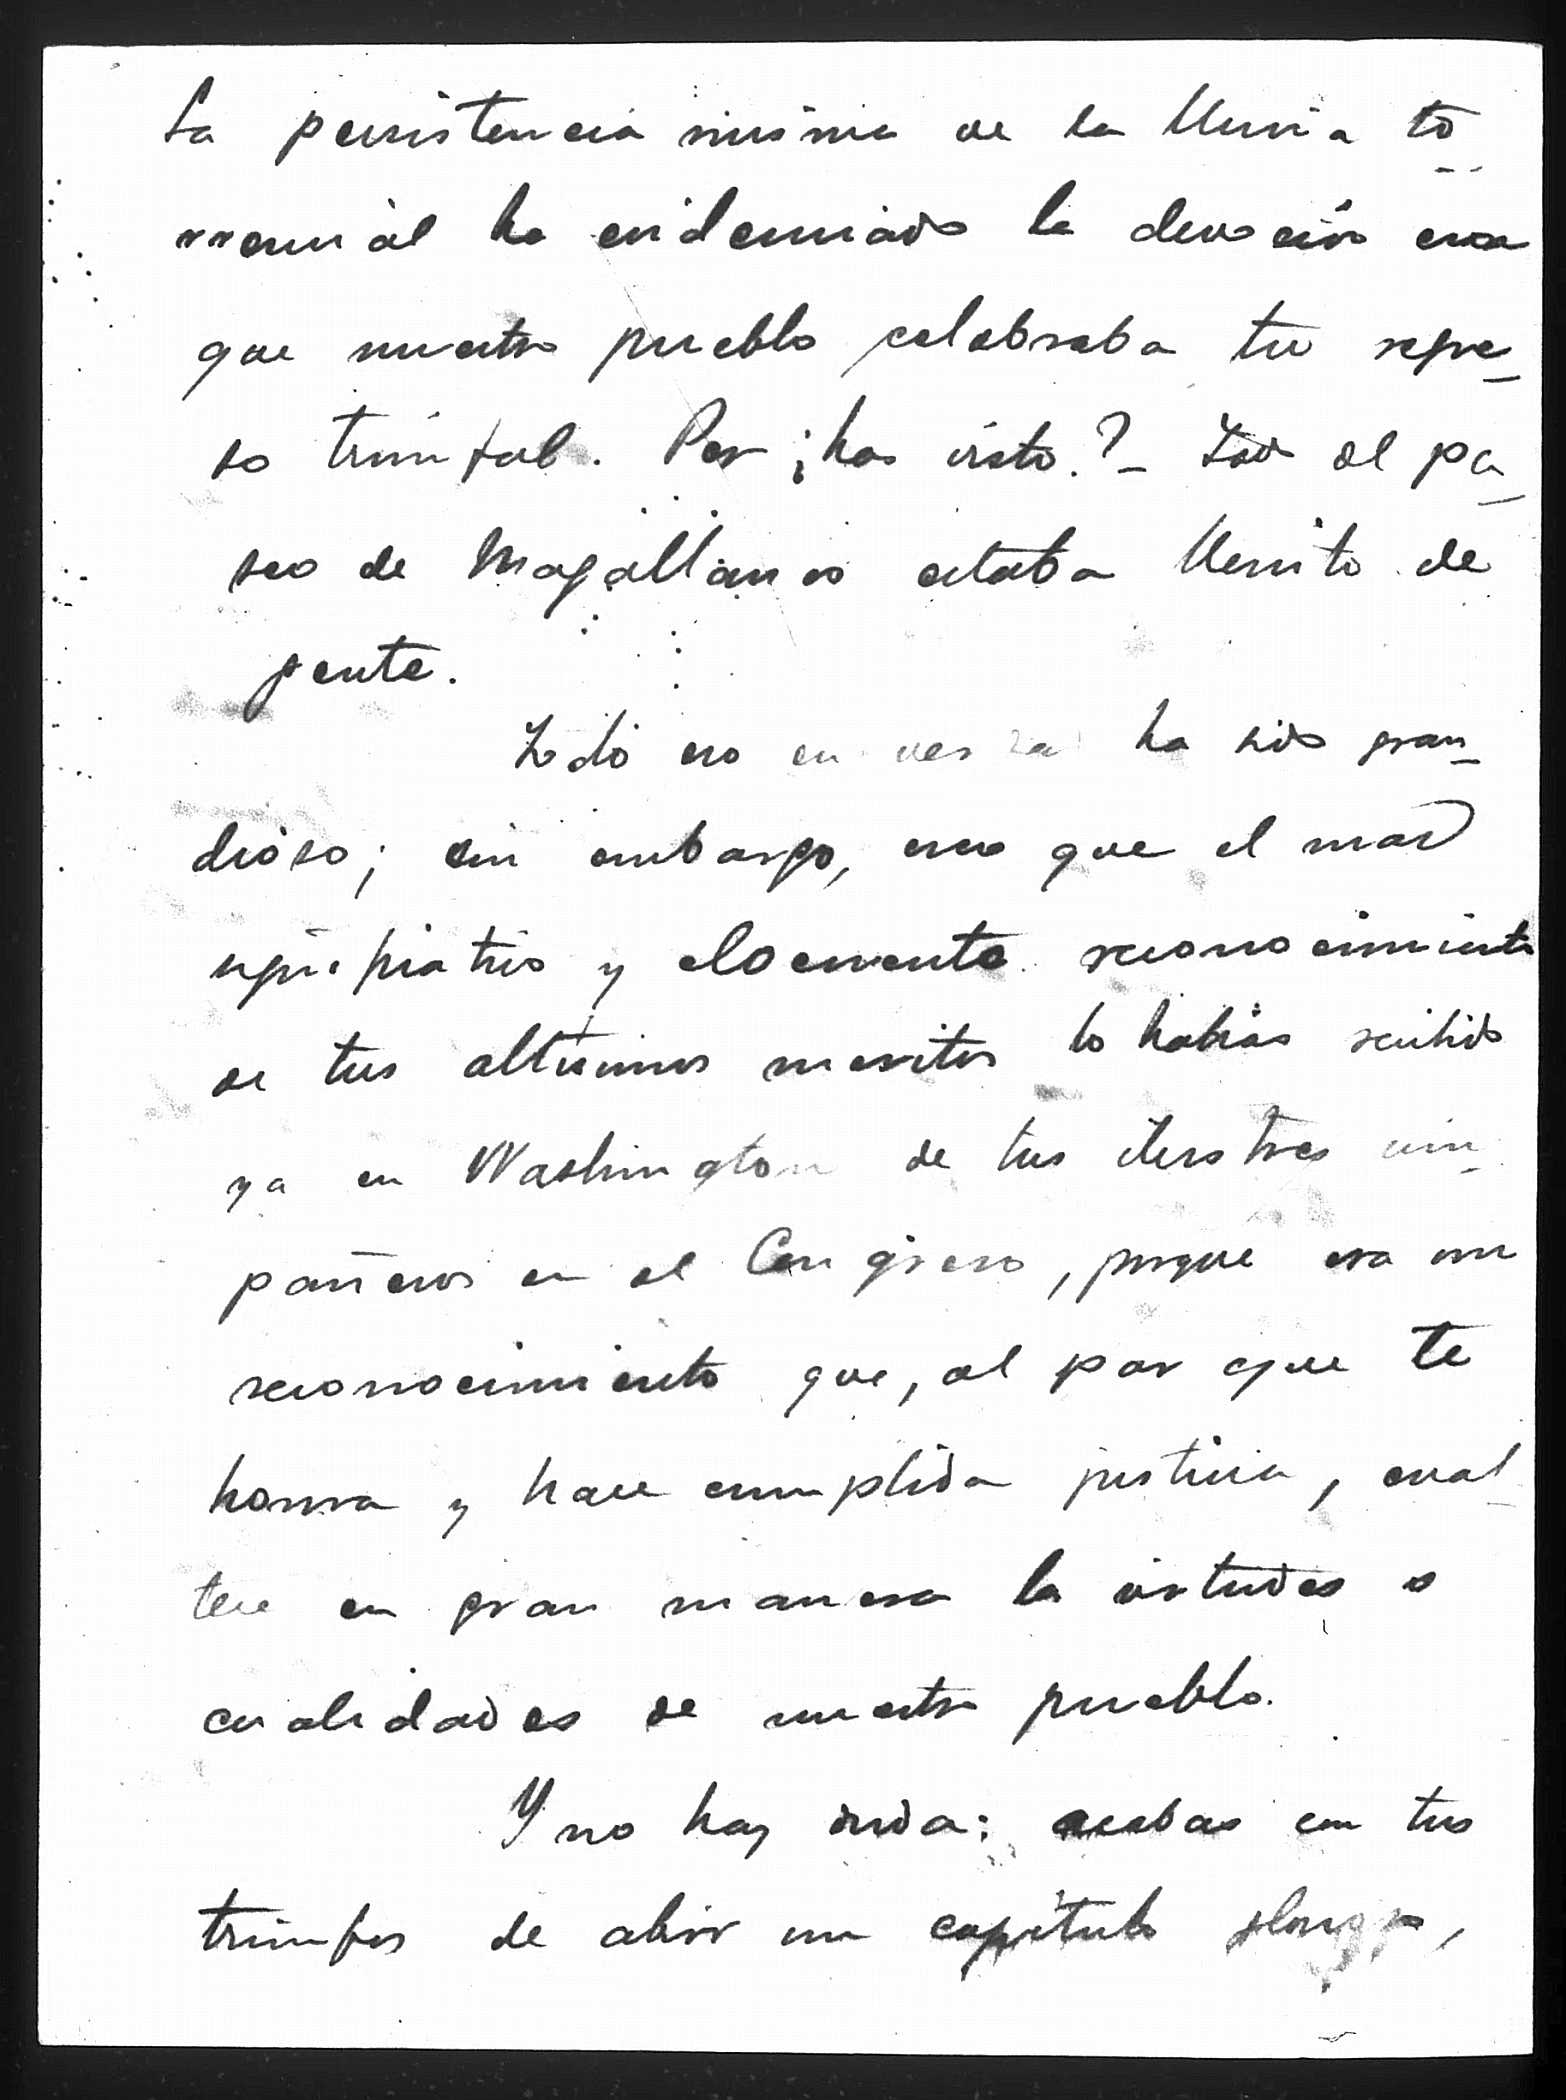 La persistencia misma de la lluvia to-
rrencial ha evidenciado la devoción con
que nuestro pueblo celebraba tu regre-
so triunfal. Pero ¿has visto?- Todo el pa-
seo de Magallanes estaba llenito de
gente.
Todo eso en verdad ha sido gran-
dioso; sin embargo, creo que el mas
y elocuente reconocimiento
de tus altisimos meritos lo habias recibido
ya en Washington de tus ilustres com-
pañeros en el Congreso, porque era un
reconocimiento que, al par que te
honra y hace cumplida justicia, enal-
tece en gran manera la virtudes o
cualidades de nuestro pueblo.
Y no hay duda: acabas con tus
triunfos de abrir un capítulo glorioso,